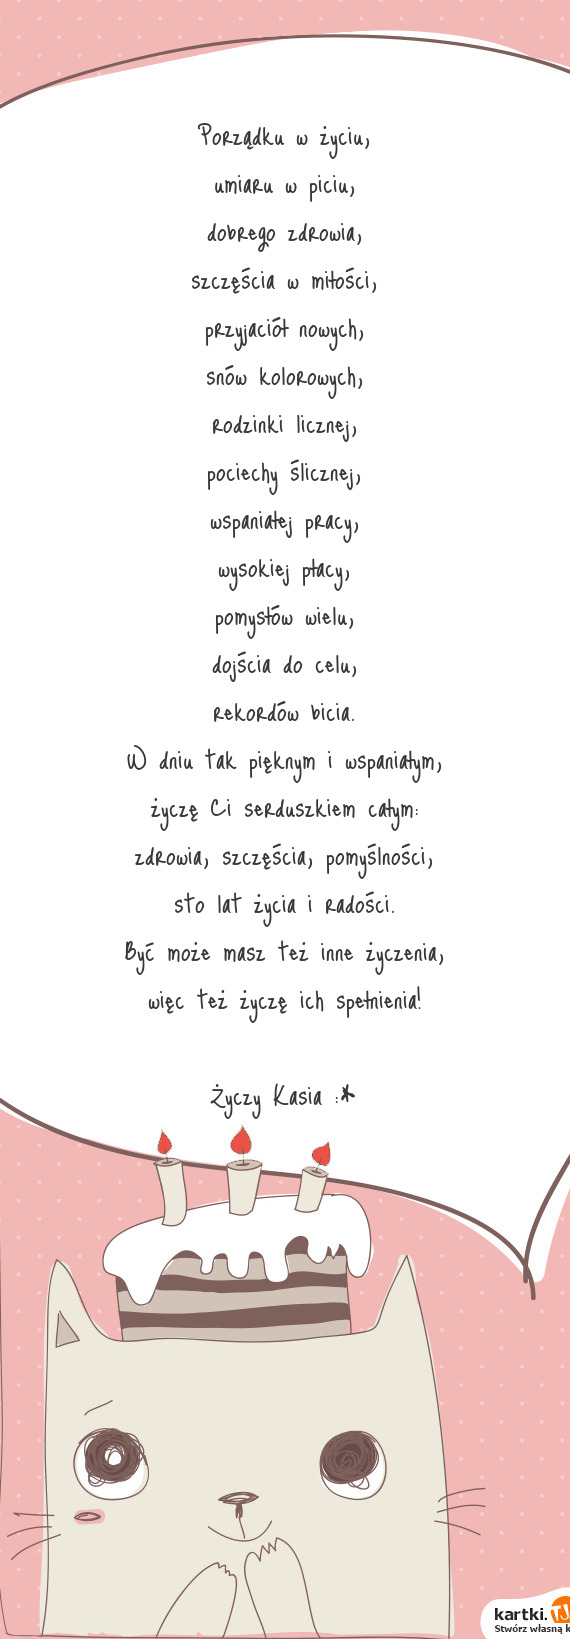 Porządku w życiu,
umiaru w piciu,
dobrego zdrowia,
szczęścia w miłości,
przyjaciół nowych,
snów kolorowych,
rodzinki licznej,
pociechy ślicznej,
wspaniałej pracy,
wysokiej płacy,
pomysłów wielu,
dojścia do celu,
rekordów bicia.
W dniu tak pięknym i wspaniałym,
życzę Ci serduszkiem całym:
zdrowia, szczęścia, pomyślności,
sto lat życia i radości.
Być może masz też inne życzenia,
więc też życzę ich spełnienia!
Życzy Kasia :*
kartki.TJ
Stwórz własną k